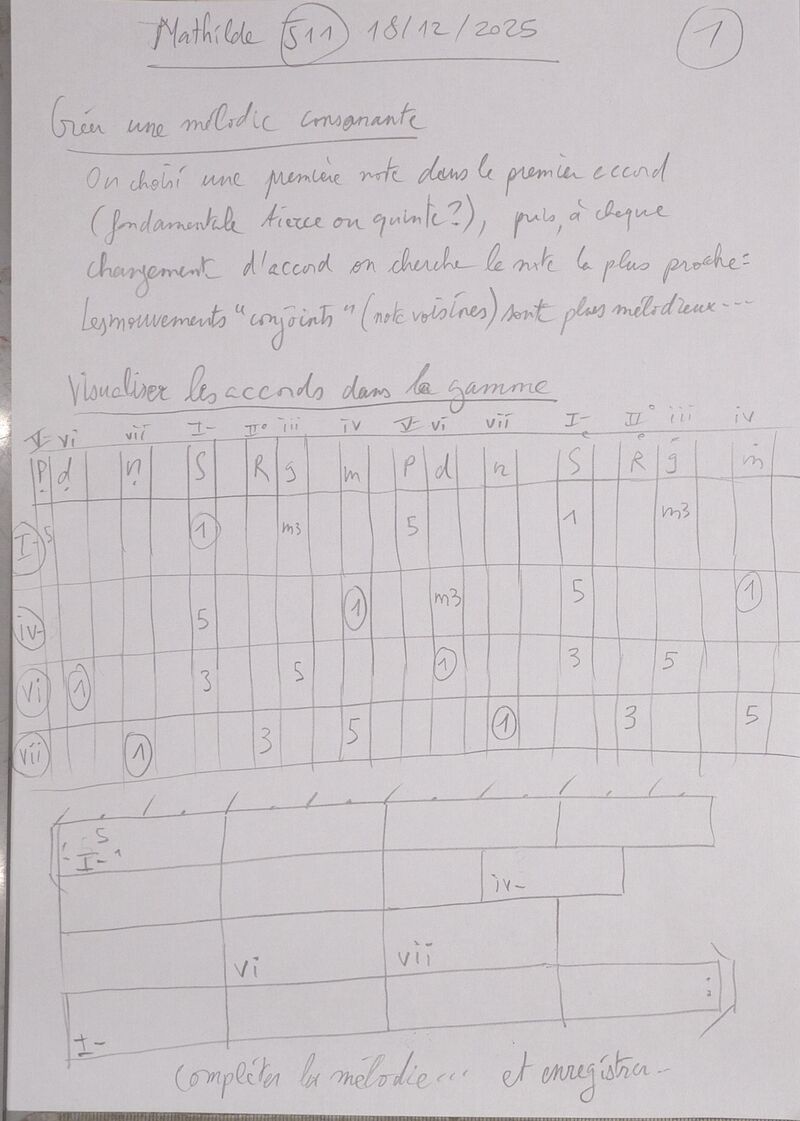 Mathilde 511 18/12/2025 1
Créer une mélodie consonante
On choisi une première note dans le premier accord
(fondamentale tierce ou quinte?), puis, à chaque
changement d'accord on cherche la note la plus proche :
Les mouvements "conjoints" (note voisines) sont plus mélodieux ...
Visualiser les accords dans la gamme
V- vi vii I- II° iii iv V- vi vii I- II° iii iv
P d n S R g m P d n S R g m
I- 5 1 m3 5 1 m3
iv- 5 1 m3 5 1
vi 1 3 5 1 3 5
vii 1 3 5 1 3 5
5
I- 1
iv-
vi vii
I-
Compléter la mélodie ... et enregistrer ..